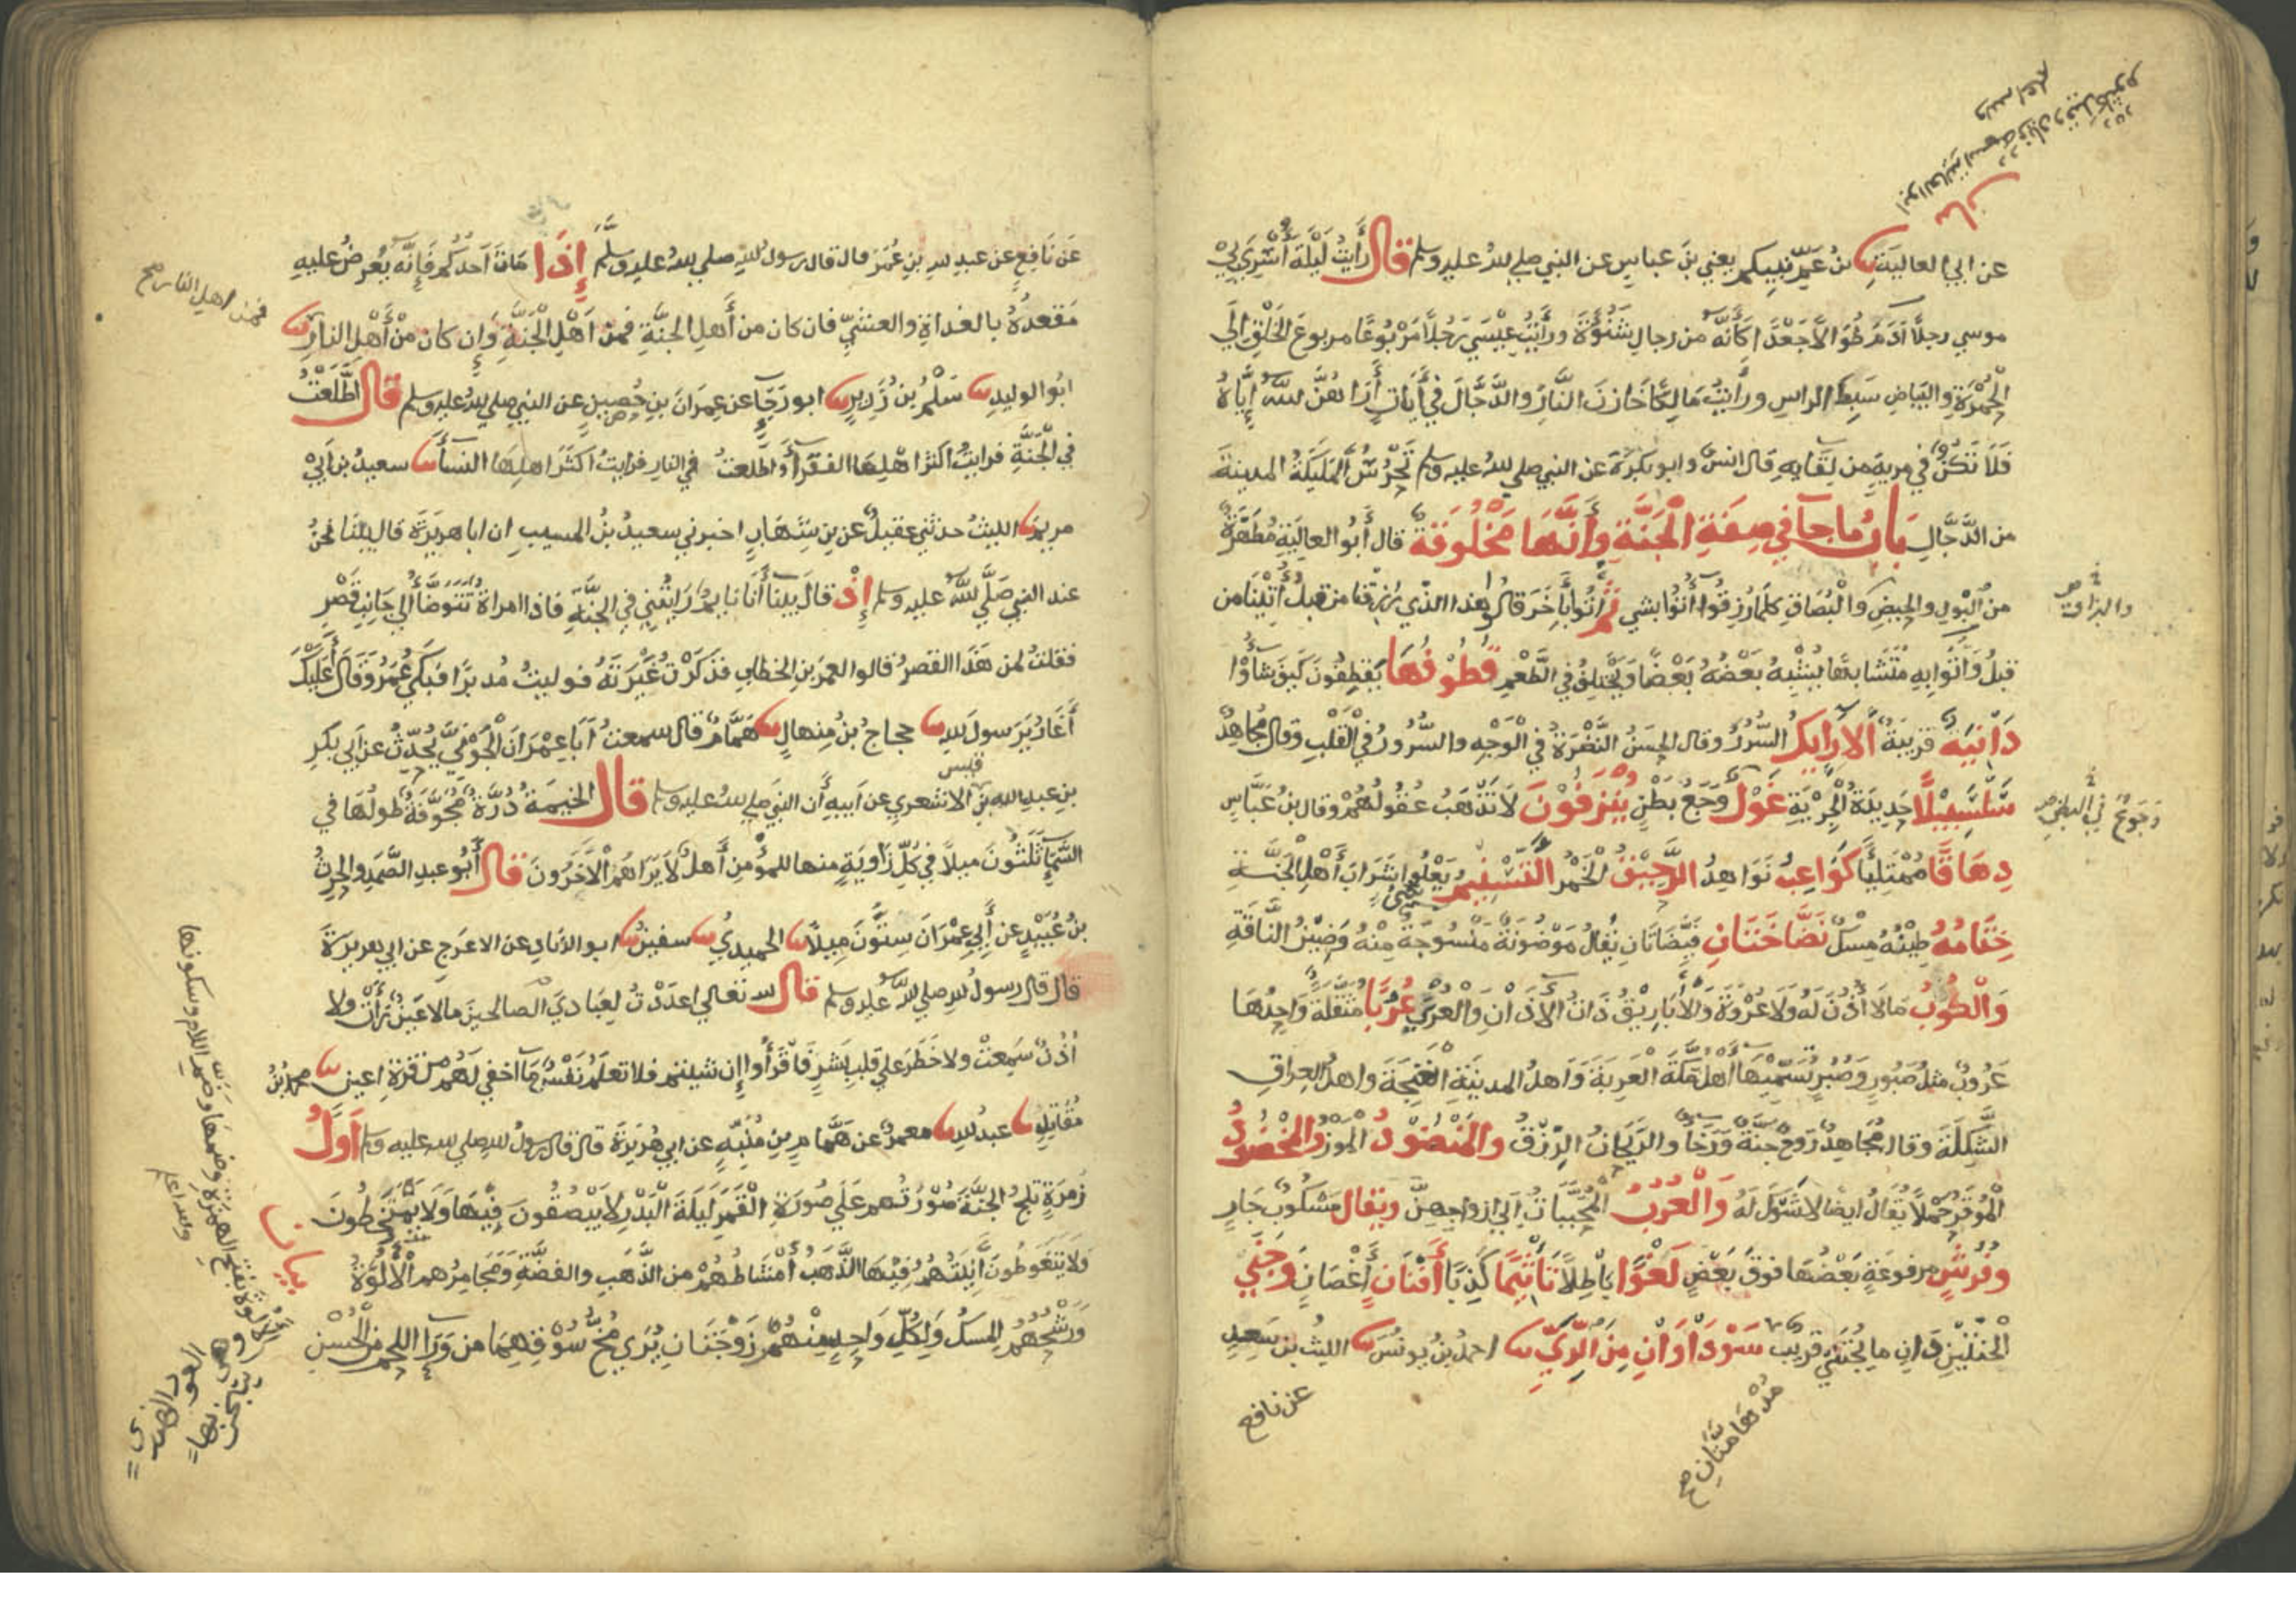 عن ابي العالية بن عمّ نبيكم يعني بن عباس عن النبي صلى الله عليه وسلم قال رأيت ليلة أسري بي
موسي رجلاً آدَمَ طُوَالاً جَعْدًا كَأنّه من رجال شَنُؤَةَ ورأَيتُ عِيْسَي رَجُلاً مَرْبُوعًا مربوعَ الخَلْقِ الَي
الْحُمْرَةِ والبَيَاضِ سَبِطَ الراسِ ورأَيتُ مَالِكًا خَازنَ النَّارِ والدَّجَّالَ فِي أَيَاتٍ أرَاهُنَّ اللهُ إيَّاهُ
فَلَا تَكُنْ في مريةٍ من لِقَايِهِ قال انس وابو بكرة عن النبي صلي الله عليه وسلم تَحْرُسُ الْمَلَيِكَةُ المدينةَ
من الدَّجَّالِ بَابُ ما جآ في صِفَةِ الْجَنَّةِ وَأَنَّهَا مَخْلُوقَةٌ قال أَبُو العالِيَةِ مُطَهَّرَةٌ
من الْبَوْلِ والحيضِ وَالْبُصَاقِ كلَّمَا رُزِقُوا أُتُوْا بشيٍ ثُمَّ أُتُوا بِآخَرَ قالُوا هذا الذي رُزِقنا من قبلُ أُتِيْنَا من
قبلُ وَأُتُوا بِهِ مُتَشَابِهًا يُشْبِهُ بَعْضُهُ بَعْضًا وَيَخْتَلِفُ في الطَّعْمِ قُطُوْفُهَا يَقْطِفُونَ كَيْفَ شَاؤُا
دَانِيَةٌ قَرِيْبَةٌ الأَرَايِكُ السُّرُرُ وقال الحسنُ النَّضْرَةُ في الْوَجْهِ والسُّرُورُ فِي الْقَلْبِ وقال مُجَاهِدٌ
سَلْسَبِيْلاً حَدِيدَةُ الْجِرْيَةِ غَوْلٌ وَجَعُ بَطْنٍ يُنْزَفُوْنَ لا تَذْهَبُ عُقُولُهُمْ وقال بنُ عَبَّاسٍ
دِهَاقًا مُمْتَلِيًا كَوَاعِبُ نَوَاهِدُ الرَّحِيْقُ الْخَمْرُ التَّسْنِيْمُ يَعْلُوا شَرَابَ أَهْلِ الْجَنَّةِ
خِتَامُهُ طِيْنُهُ مِسْكٌ نَضَّاخَتَانِ فَيَّاضَتَانِ يُقَالُ مَوْضُونَةٌ مَنْسُوجَةٌ مِنْهُ وَضِيْنُ النَّاقَةِ
وَالْكُوْبُ مَا لَا أُذُنَ لَهُ وَلَا عُرْوَةَ وَالْأَبَارِيْقُ ذَاتُ الْآذَانِ وَالْعُرَي عُرُبًا مُثَقَّلَةً وَاحِدُهَا
عَرُوْبٌ مثلُ صَبُورٍ وَصُبُرٍ يُسَمِّيْهَا أَهْلُ مَكَّةَ الْعَرِبَةَ وَاَهلُ المدينَةِ الْغَنِجَةَ واهلُ العِرَاقِ
الشَّكِلَةَ وقال مُجَاهِدٌ رَوْحٌ جَنَّةٌ وَرَخَآ والرَّيحَانُ الرِّزْقُ والْمَنْضُوْدُ الْمَوْزُ والْمَخْضُوْدُ
الْمُوْقَرُ حَمْلاً يُقَالُ ايضًا لا شَوْكَ لَهُ وَالْعُرُبُ الْمُحَبَّبَاتُ إِلَي ازواجِهِنَّ ويقال مَسْكُوْبٌ جَارٍ
وفُرُشٍ مرفوعَةٍ بَعْضُهَا فوقَ بَعْضٍ لَغْوًا بَاطِلاً تَاثِيْمًا كَذِبًا أَفْنَانٍ أَغْصَانٍ وَجَنَي
الْجَنَّتَيْنِ دَانٍ ما يُجْتَنَي قريبٌ سَوْدَاوَانِ مِنَ الرِّيِّ احمدُ بنُ يونُسَ الليثُ بن سَعِيدٍ
مُدْهَامَّتَانِ صح
عن نافع
والبزاق
وَجَعٌ في البطن
عَن نَافِعٍ عن عبدِ اللهِ بنِ عُمَرَ قال قال رسول اللهِ صلي الله عليه وسلم إِذَا مَاتَ أحَدُكُم فَإِنَّه يُعْرَضُ عليهِ
مَقعدُهُ بالغداةِ والعشيِّ فان كان من أَهلِ الجنَّةِ فمن اَهْلِ الْجَنَّةِ وَإِن كان مِنْ أَهْلِ النارِ
فمن اهل النار صح
ابُو الوليدِ سَلْمُ بن زَرِيرٍ ابو رَجَآءٍ عن عِمرَانَ بنِ حُصينٍ عن النبي صلي الله عليه وسلم قال اَطَّلَعْتُ
فِي الْجَنَّةِ فرايتُ اكثرَ اهْلِهَا الفقرآ وَاَطَّلعتُ في النارِ فرايتُ اكثرَ اهلِهَا النسآ سعيدُ بن ابي
مريمَ الليثُ حدثني عقيلٌ عن بن شِهَابٍ اخبرني سعيدُ بنُ المسيبِ ان ابا هريرةَ قال بينَا نحنُ
عند النبي صَلَّي اللهُ عليه وسلم إِذْ قال بينَا أَنَا نايمٌ رَايتُنِي فِي الْجَنَّةِ فاذا امراةٌ تَتَوَضَّأُ الي جَانِبِ قَصْرٍ
فقلتُ لمن هَذَا القصرُ قالوا لعمرَ بنِ الخطابِ فذَكَرْتُ غَيْرَتَهُ فوليتُ مُدبِرًا فَبَكَي عُمَرُ وَقَالَ أَعَلَيْكَ
أَغَارُ يَرسولَ اللهِ حجاجُ بنُ مِنهالٍ هَمَّامٌ قال سمعتُ أَبَا عِمْرَانَ الْجَوْنِيَّ يُحَدِّثُ عن اَبي بَكرِ
بنِ عبدِ الله بنِ قيس الاشعري عن ابيهِ أن النبيَ صلي الله عليه وسلم قال الْخَيمةُ دُرَّةٌ مُجَوَّفَةٌ طولُهَا في
السَّمَآءِ ثَلَثُونَ ميلاً في كُلِّ زَاويةٍ منها للمؤْمنِ أَهلٌ لَا يَرَاهُمُ الْآخَرُونَ قال أَبُو عبدِ الصَّمَدِ والحرثُ
بنُ عُبَيْدٍ عن أَبِي عِمْرَانَ سِتُّونَ مِيلاً الحميديُّ سفينُ ابو الزنادِ عن الاعرَجِ عن ابي هريرةَ
قال قال رسولُ اللهِ صلي اللهُ عليه وسلم قال الله تعالي اعدَدْتُ لِعِبَادِيَ الصالحينَ مالا عينٌ رَأَتْ ولا
أُذُنٌ سَمِعتْ ولا خَطَرَ علي قلبِ بَشرٍ فَاقْرَأُوا إِن شيتم فلا تعلَمُ نَفْسٌ مَا اخفي لَهُم من قرةِ اعينٍ محمدُ بنُ
مُقَاتِلٍ عبدُ اللهِ معمرٌ عن هَمَّامِ بنِ مُنَبِّهٍ عن ابي هُرَيْرَةَ قال قال رسولُ اللهِ صلي الله عليه وسلم أَوَّلُ
زُمرَةٍ تلجُ الجنَّةَ صُوْرَتُهم عَلَي صُورَةِ الْقَمَرِ لَيْلَةَ الْبَدْرِ لا يَبْصُقُونَ فِيْهَا وَلَا يَمْتَخِطُونَ
وَلَا يَتَغَوَّطُونَ آنِيَتُهُمْ فِيْهَا الذَّهَبُ أَمْشَاطُهُمْ من الذَّهَبِ والفضَّةِ وَمَجَامِرُهم الْأُلُوَّةُ
وَرَشْحُهُمُ المِسكُ وَلِكُلِّ واحِدٍ مِنْهُمْ زَوْجَتَانِ يُرَي مُخُّ سُوْقِهِمَا من وَرَآ اللحمِ من الْحُسْنِ
بيان
الالوة بفتح الهمزة وضمها وضم اللام وسكونها
والله اعلم